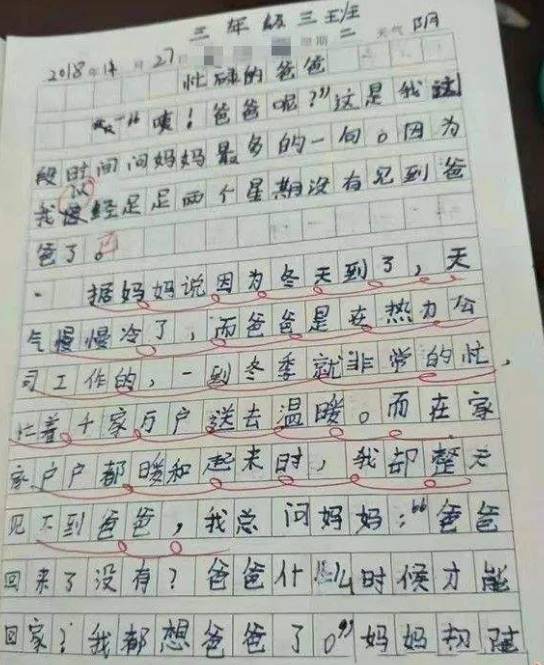 三年级三班
2018年11月27日 星期二 天气阴
忙碌的爸爸
“咦！爸爸呢？”这是我这
段时间问妈妈最多的一句。因为
我已经足足两个星期没有见到爸
爸了。
据妈妈说因为冬天到了，天
气慢慢冷了，而爸爸是在热力公
司工作的，一到冬季就非常的忙，
忙着千家万户送去温暖。而在家
家户户都暖和起来时，我却整天
见不到爸爸，我总问妈妈：“爸爸
回来了没有？爸爸什么时候才能
回家？我都想爸爸了。”妈妈却